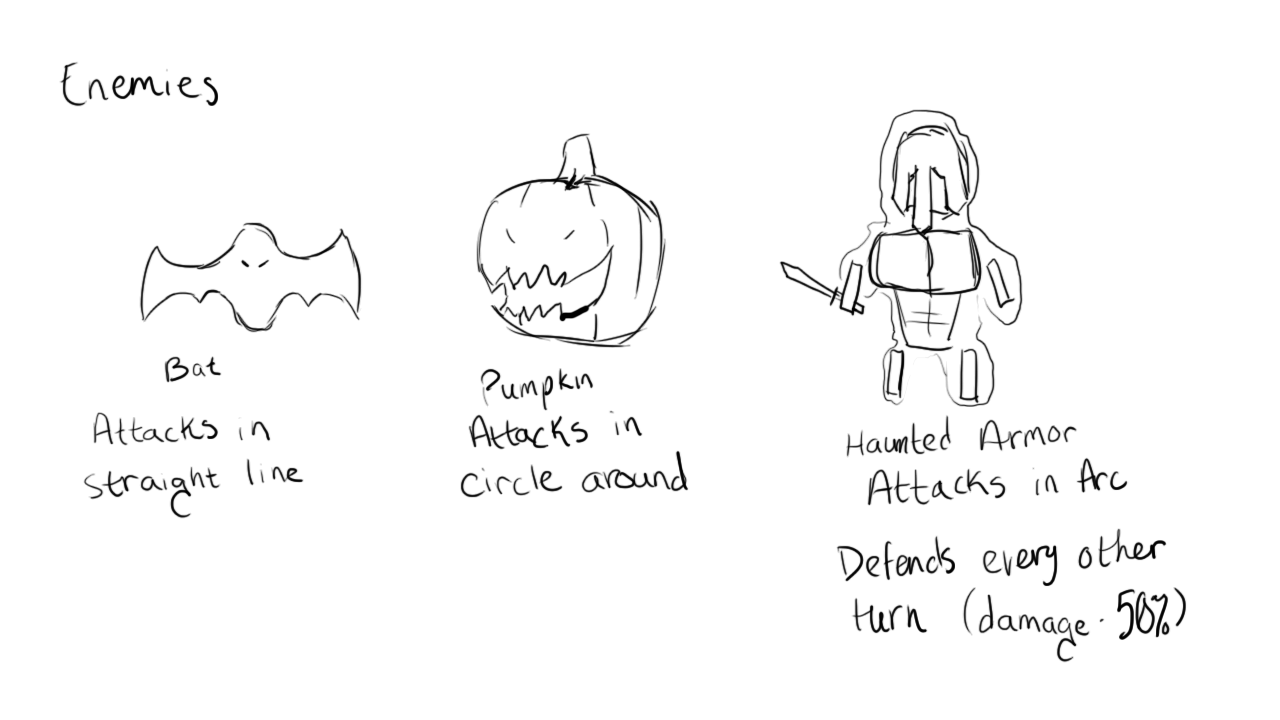 Enemies
Bat
Attacks in
straight line
Pumpkin
Attacks in
circle around
Haunted Armor
Attacks in Arc
Defends every other
turn (damage · 50%)